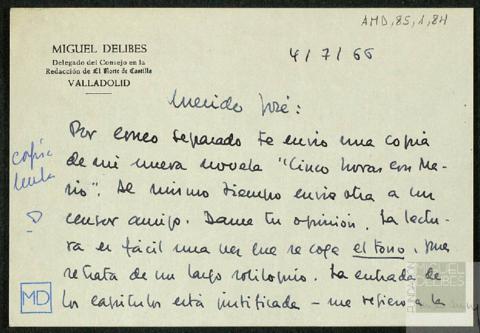 AMD,85,1,84
MIGUEL DELIBES
Delegado del Consejo en la
Redacción de El Norte de Castilla
VALLADOLID
4/7/66
Querido José:
Por correo separado te envío una copia
de mi nueva novela "Cinco horas con Ma-
rio". Al mismo tiempo envío otra a un
censor amigo. Dame tu opinión. La lectu-
ra es fácil una vez que se coge el tono. Se
retrata de un largo soliloquio. La entrada de
los capítulos está justificada – me refiero a la
copia
MD
FUNDACIÓN
MIGUEL
DELIBES